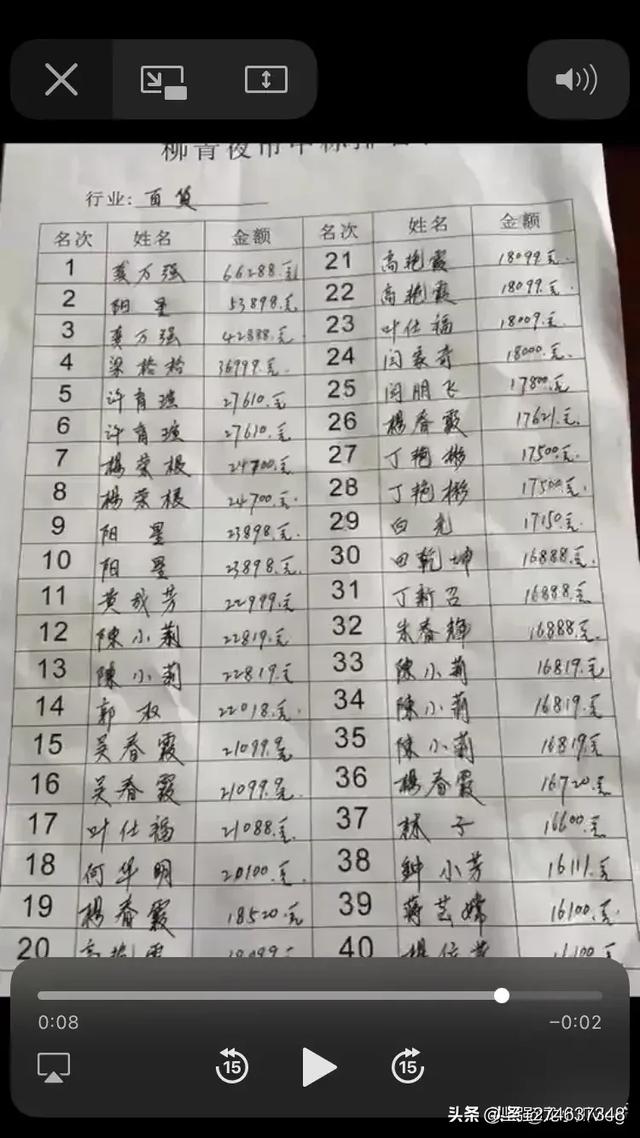 柳青夜市中标
行业: 百货
名次 姓名 金额 名次 姓名 金额
1 龚万强 66288.元 21 高艳霞 18099.元
2 阳星 53898.元 22 高艳霞 18099.元
3 龚万强 42888.元 23 叶仕福 18009.元
4 梁 36999.元 24 闫家奇 18000.元
5 许育琼 27610.元 25 闵朋飞 17800.元
6 许育琼 27610.元 26 楊春霞 17621.元
7 楊荣根 24700.元 27 丁艳彬 17500.元
8 楊荣根 24700.元 28 丁艳彬 17500.元
9 阳星 23898.元 29 白光 17150.元
10 阳星 23898.元 30 田乾坤 16888.元
11 黄 芳 22999.元 31 丁新召 16888.元
12 陳小莉 22819.元 32 朱春輝 16888.元
13 陳小莉 22819.元 33 陳小莉 16819.元
14 郭 22018.元 34 陳小莉 16819.元
15 吴春霞 21099.元 35 陳小莉 16819.元
16 吴春霞 21099.元 36 楊春霞 16720.元
17 叶仕福 21088.元 37 林子 16600.元
18 何华明 20100.元 38 鈡小芳 16111.元
19 楊春霞 18520.元 39 蒋芸嫦 16100.元
20 40
0:08 -0:02
15 15
头条 @头条274637348